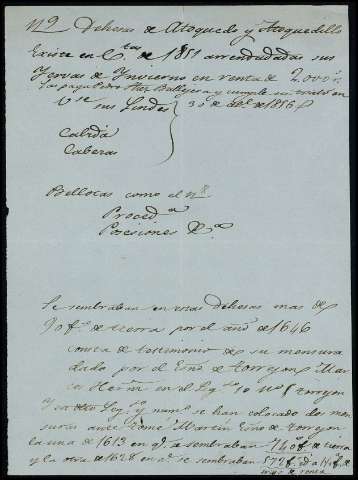 Nº Dehesas de Atoquedo y Atoquedillo
Existe en Ctas de 1851 arrendadadas sus
Yervas de Ynvierno en renta de 2,000 rs
las paga Pedro Ballejera y cumple su trato en
Vse sus Lindes } 30 de Abl de 1856
Cabida
Caberas
Bellotas como el nº 8
Proceda
Posesiones &as
Se sembraban en estas dehesas mas de
90 fs de tierra por el año de 1646
consta de testimonio de su mensura
dado por el Eno de torryon
en el Legº 10 Nº 1 torryon
Y en dho Legº y numº se han colocado dos men
suras ante Tomé Martin Eno de torryon
la una de 1613 en q. se sembraban 740 fs de tierra
y la otra de 1628 en q. se sembraban 572 fs
trigo de renta